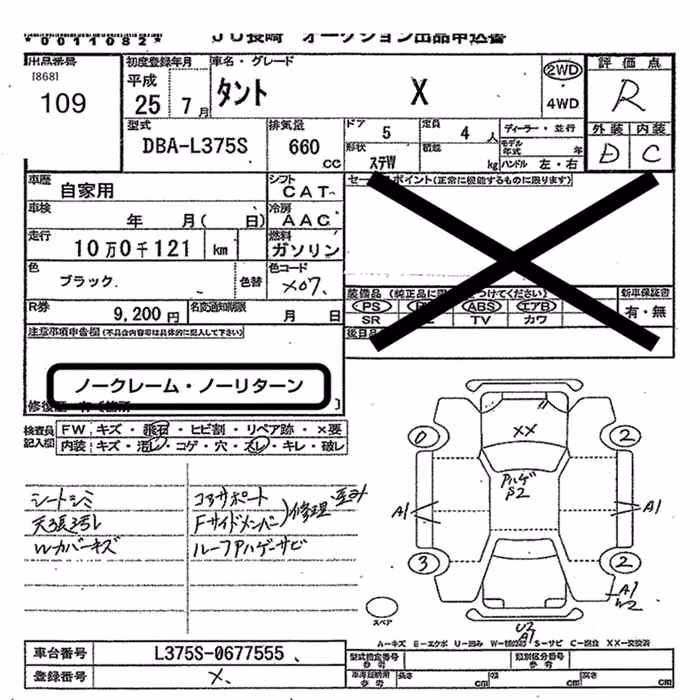 *0011082*
JU長崎 オークション出品申込書
出品番号
[868]
109
初度登録年月
平成
25 7月
車名・グレード
タント X
2WD
4WD
評価点
R
外装 内装
D C
型式
DBA-L375S
排気量
660
cc
ドア
5
定員
4 人
ディーラー・並行
形状
ステW
積載
kg
モデル年式
年
ハンドル 左・右
車歴
自家用
シフト
CAT
車検
年 月( 日)
冷房
AAC
走行
10万0千121 km
燃料
ガソリン
色
ブラック
色替
色コード
X07
R券
9,200円
名変通知期限
月 日
セールスポイント(正常に機能するものに限ります)
新車保証書
有・無
PS
ABS
エアB
SR
TV
カワ
注意事項申告欄(不具合内容等は具体的に記入して下さい)
ノークレーム・ノーリターン
検査員
記入欄
FW キズ・飛石・ヒビ割・リペア跡・×要
内装 キズ・汚れ・コゲ・穴・スレ・キレ・破レ
シートシミ
天張汚れ
Wカバーキズ
コアサポート
Fサイドメンバー
修理・歪み
ルーフアハゲサビ
XX
アハゲ
S2
0
2
A1
A1
3
2
A1
W2
U2
A1
スペア
A-キズ E-エクボ U-凹み S-サビ C-腐食 XX-交換済
車台番号
L375S-0677555
登録番号
X
型式指定番号
参考
類別区分番号
参考
長さ
cm
幅
cm
高さ
cm